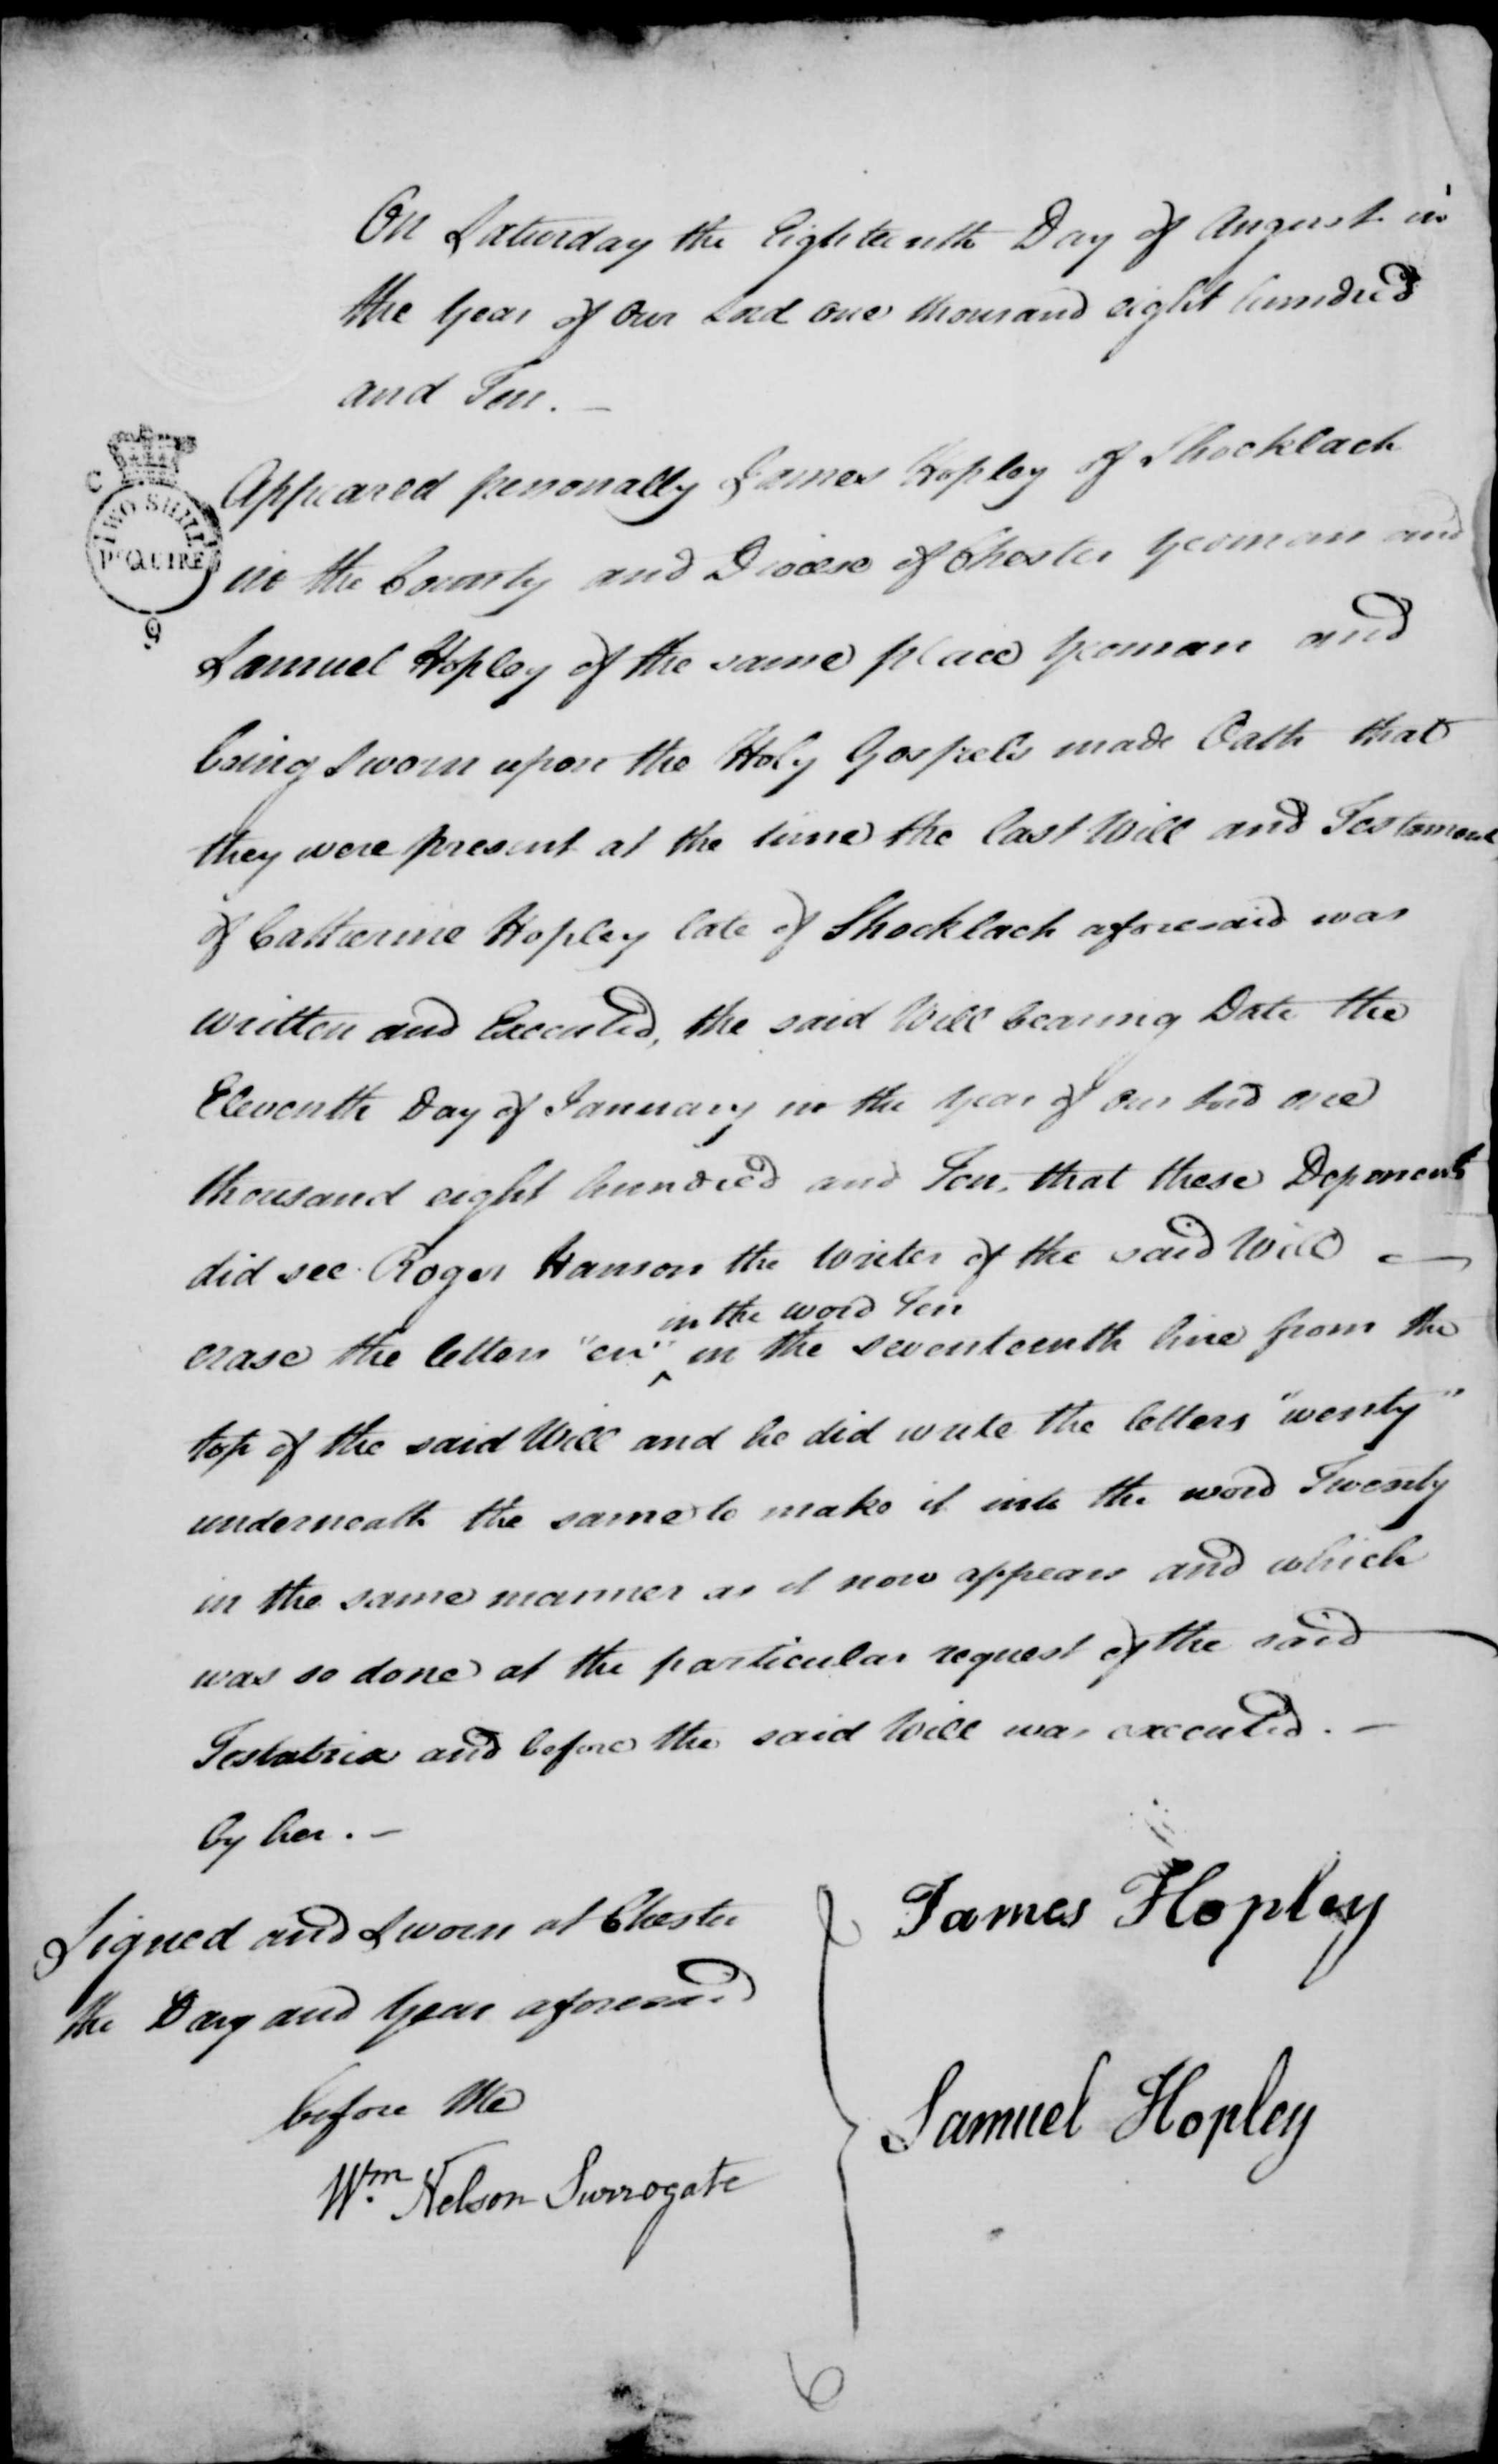 On Saturday the Eighteenth Day of August in
the Year of Our Lord One thousand eight hundred
and Ten. –
C
TWO SHILL
Pr QUIRE
9
Appeared personally James Hopley of Shocklach
in the County and Diocese of Chester Yeoman and
Samuel Hopley of the same place Yeoman and
being Sworn upon the Holy Gospels made Oath that
they were present at the time the last Will and Testament
of Catherine Hopley late of Shocklach aforesaid was
written and Executed, the said Will bearing Date the
Eleventh Day of January in the Year of Our Lord one
thousand eight hundred and Ten, that these Deponents
did see Roger Hanson the Writer of the said Will –
in the word Ten
erase the letters "en" ^ in the seventeenth line from the
top of the said Will and he did write the letters "wenty"
underneath the same to make it into the word Twenty
in the same manner as it now appears and which
was so done at the particular request of the said
Testatrix and before the said Will was executed. –
by her. –
Signed and Sworn at Chester
the Day and Year aforesaid
before Me
Wm. Nelson Surrogate
James Hopley
Samuel Hopley
6